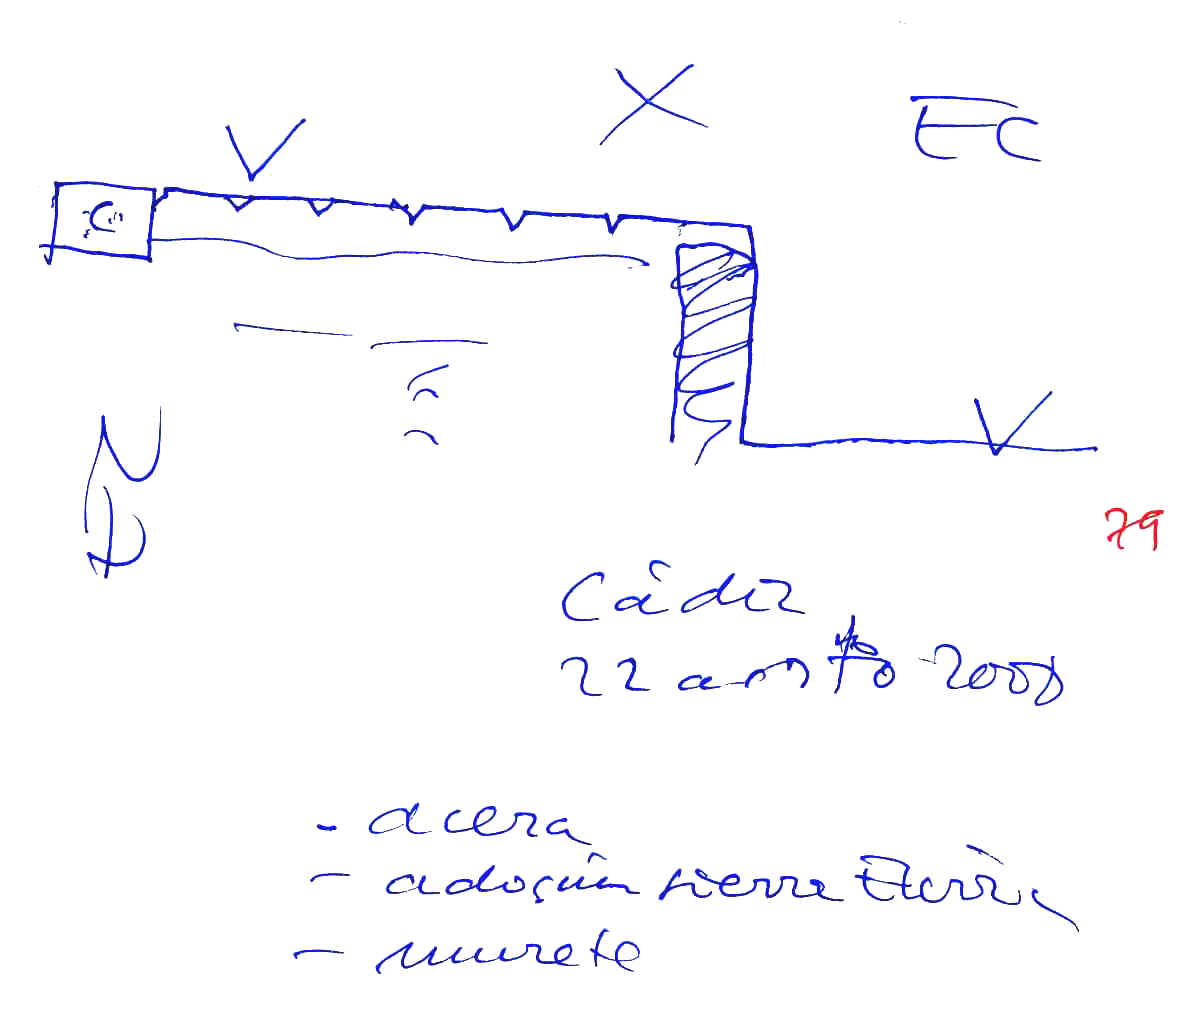 V
X
EC
C
V
N
D
79
Cádiz
22 agosto 2000
- acera
- adoquín sierra Elvira
- murete